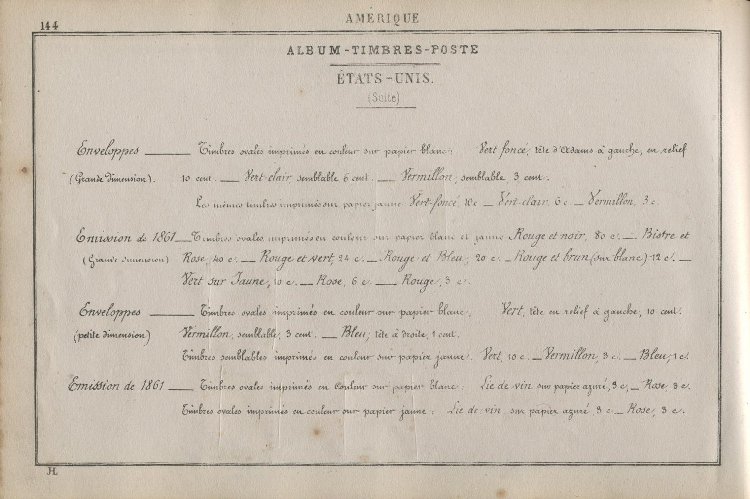 144
AMÉRIQUE
ALBUM-TIMBRES-POSTE
ÉTATS-UNIS.
(Suite)
Enveloppes — Timbres ovales imprimés en couleur sur papier blanc: Vert foncé, tête d'Adams à gauche, en relief
(Grande dimension). 10 cent. — Vert-clair semblable 6 cent. — Vermillon, semblable 3 cent.
Les mêmes timbres imprimés sur papier jaune Vert-foncé 10 c — Vert-clair, 6 c — Vermillon, 3 c.
Emission de 1861 — Timbres ovales imprimés en couleur sur papier blanc et jaune Rouge et noir, 80 c. — Bistre et
(Grande dimension) Rose, 40 c. — Rouge et vert, 24 c. — Rouge et Bleu, 20 c. — Rouge et brun (sur blanc) 12 c. —
Vert sur Jaune, 10 c. — Rose, 6 c. — Rouge, 3 c.
Enveloppes — Timbres ovales imprimés en couleur sur papier blanc, Vert, tête en relief à gauche, 10 cent.
(petite dimension) Vermillon, semblable, 3 cent. — Bleu, tête à droite, 1 cent.
Timbres semblables imprimés en couleur sur papier jaune. Vert, 10 c. — Vermillon, 3 c. — Bleu, 1 c.
Emission de 1861 — Timbres ovales imprimés en couleur sur papier blanc: Lie de vin sur papier azuré, 3 c. — Rose, 3 c.
Timbres ovales imprimés en couleur sur papier jaune: Lie de vin sur papier azuré 3 c. — Rose, 3 c.